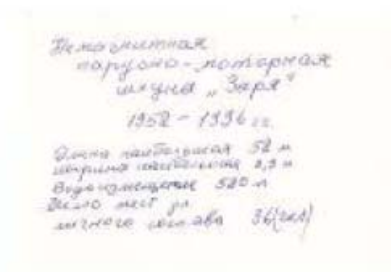 Немагнитная
парусно-моторная
шхуна „Заря"
1952 – 1996 гг.
Длина наибольшая 52 м
ширина наибольшая 8,9 м
Водоизмещение 580 т
Число мест дл
личного состава 36